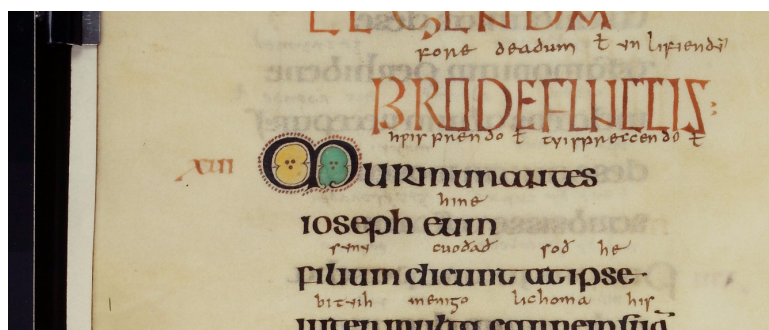 LEGENDUM
fore deadum ł in lifiendū
PRODEFUNCTIS:
hƿisprendo ł tƿispreccendo ł
XIII Murmurantes
hine
ioseph eum
cuoðað soð he
filium dicunt at ipse
bituih menigo lichoma his
inter multa carnem suā